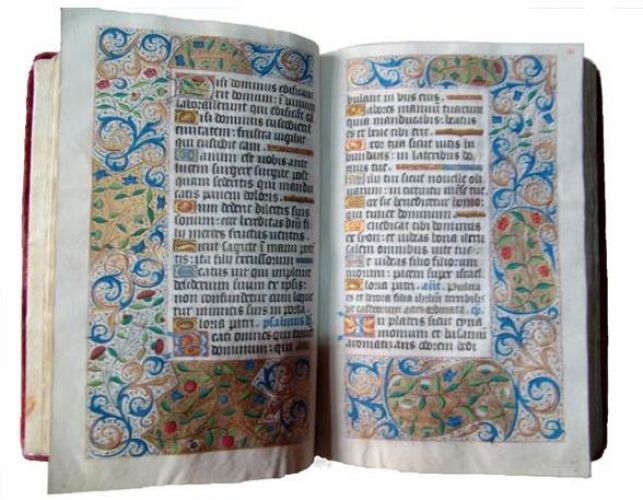 isi dominus edificaue
rit domum: i vanum
laborauerunt qui edificāt eā
isi dominus custodierit
ciuitatem: frustra vigilat
qui custodit eam
anum est nobis ante
lucem surgere surgite post
quam sederitis qui mandu
catis panem doloris
um dederit dilectis suis
somnum: ecce hereditas dñi fi
lii merces fructus ventris
icut sagitte i manu potē
tis: ita filii excussorum
eatus vir qui impleuit
desiderium suum ex ipsis:
non confundetur cum loque
tur inimicis suis in porta
loria patri psalmus
eati omnes qui timēt
dominum: qui am
bulant in viis eius
abores manuum tuarum
quia manducabis: beatus
es et bene tibi erit
xor tua sicut vitis ha
bundans: in lateribus do
mus tue
ilii tui sicut nouelle oli
uarum: in circuitu mēse tue
cce sic benedicetur homo:
qui timet dominum
enedicat tibi dominus
ex syon: et videas bona iheru
salem omnibus diebus vite tue
t videas filios filiorum
tuorum: pacem super israel
loria patri añt Pulcra
es et decora filia iherlm̄ terribilis
vt castrorum acies ordinata cp̄
n plateis sicut cyna
momum et balsamum
aromatizans odorem dedi